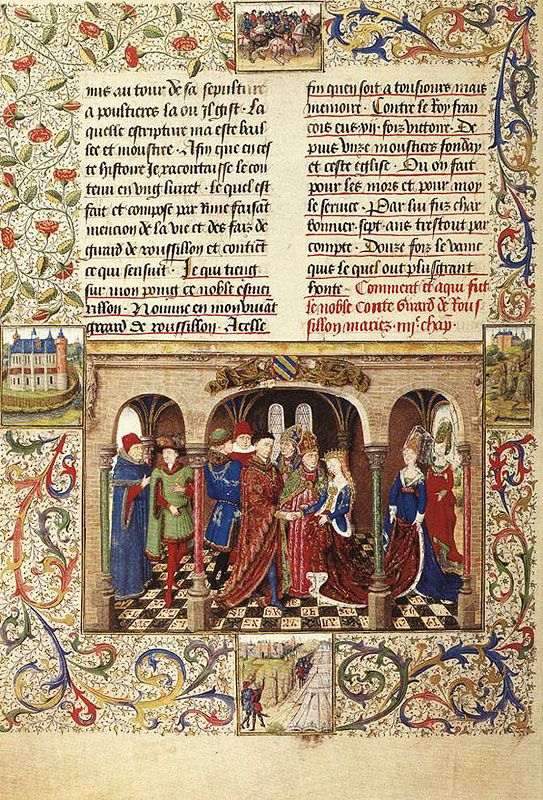 mis au tour de sa sepulture
a poultieres la ou il gist . La
quelle escripture ma este bail
lee et monstree . Afin que en ces
te histoire Je racontaisse le con
tenu en vng liuret . le quel est
fait et compose par Rime faisant
mencion de la vie et des fais de
guard de roussillon et contient
ce qui sensuit . Je qui tieng
sur mon poing ce noble esmeri
rillon . Nomme en mon viuant
gerard de roussillon . Acelle
fin quen soit a tousiours mais
memoire . Contre le Roy fran
cois eus .vij. fois victoire . De
puis vnze moustiers fonday
et ceste eglise . Ou on fait
pour les mors et pour moy
le seruice . Par lui fus char
bonnier sept ans trestout par
compte . Douze fois le vain
quis le quel out plus grant
honte ~ Comment et a qui fut
le noble Conte Girard de Rous
sillon mariez .iiije. chap .